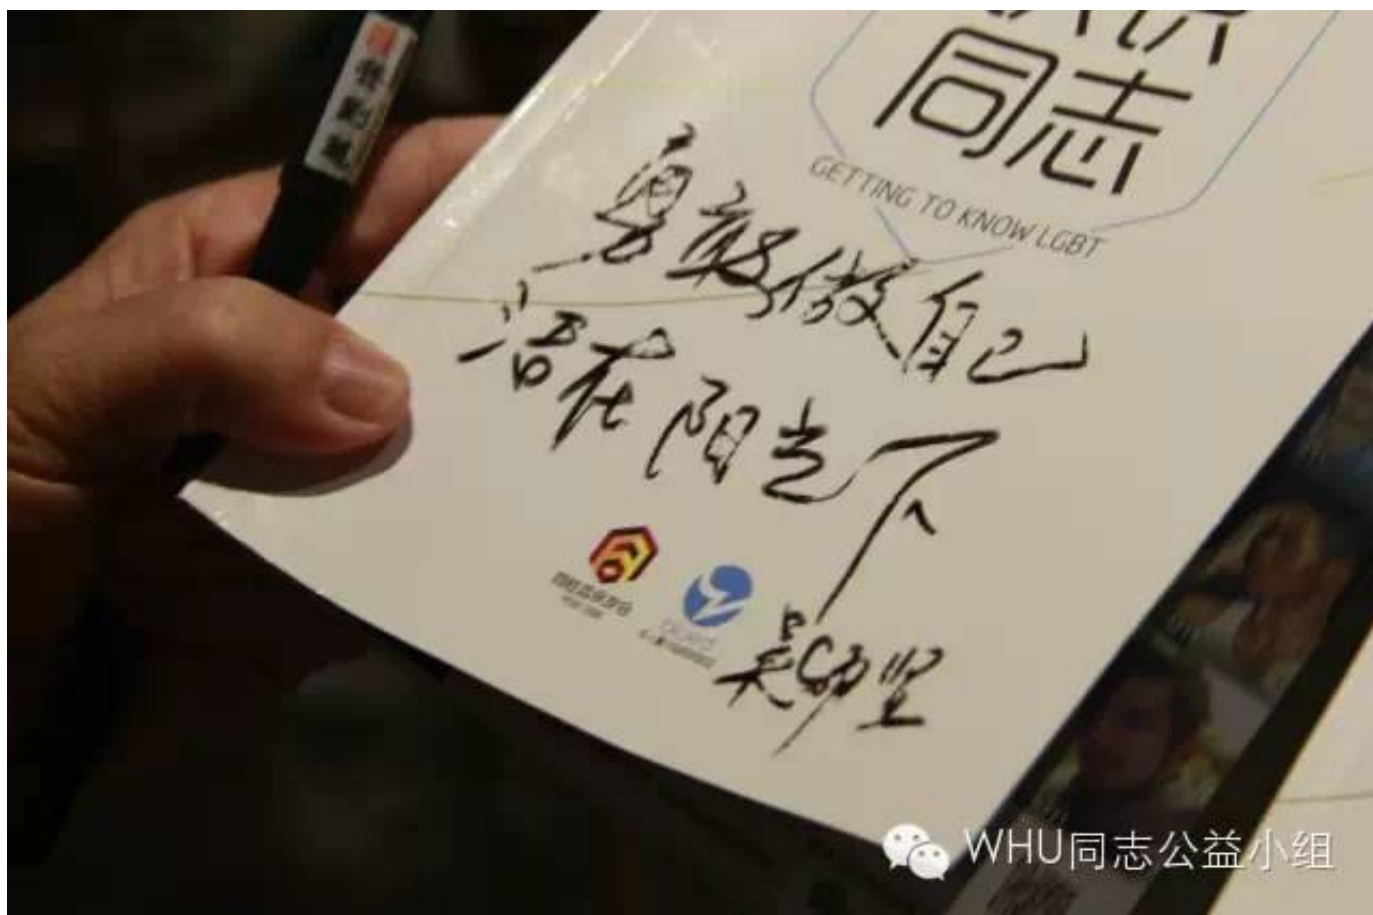 同志
GETTING TO KNOW LGBT
勇敢做自己
活在阳光下
吴幼坚
WHU同志公益小组